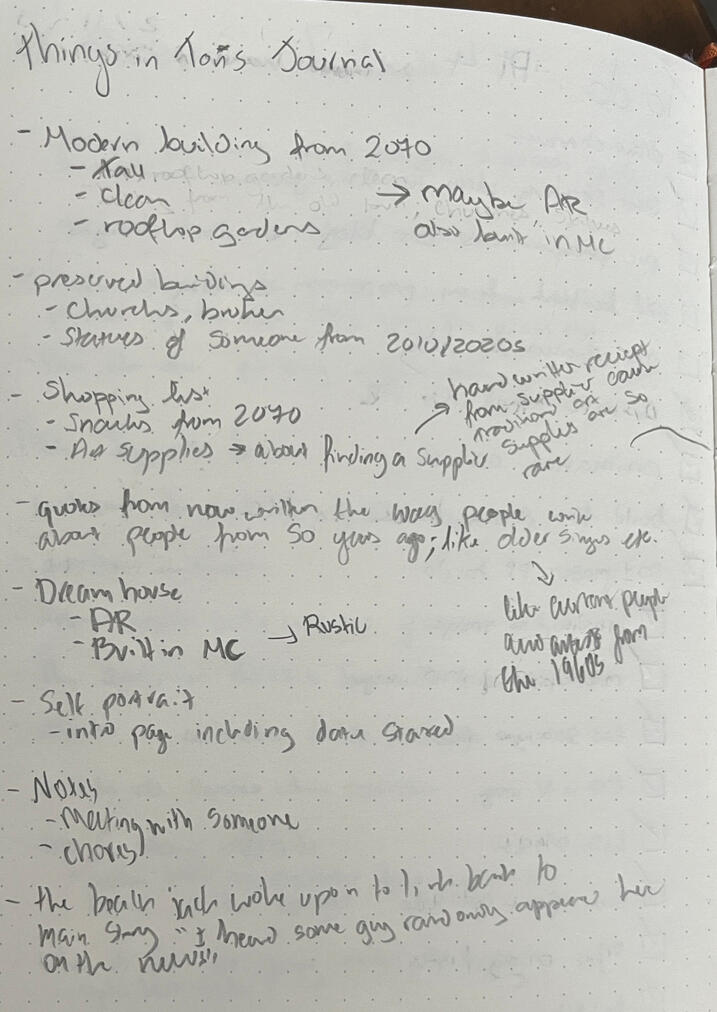 Things in Tori's Journal
- Modern building from 2070
- Tall
- clean
- rooftop gardens
→ maybe AR
also built in MC
- preserved buildings
- Churchs, broken
- Statues of someone from 2010/2020s
- Shopping list
- Snacks from 2070
- Art supplies → about finding a supplier
hand written reciept
from supplier cause
traditional art
supplies are so
rare
- quotes from now written the way people write
about people from 50 years ago; like older singers etc.
like current people
and artists from
the 1960s
- Dream house
- AR
- Built in MC → Rustic
- Self portrait
- intro page including date stared
- Notes
- Meeting with someone
- chores
- the beach jack woke up on to link back to
main story "I heard some guy randomly appeared here
on the news"